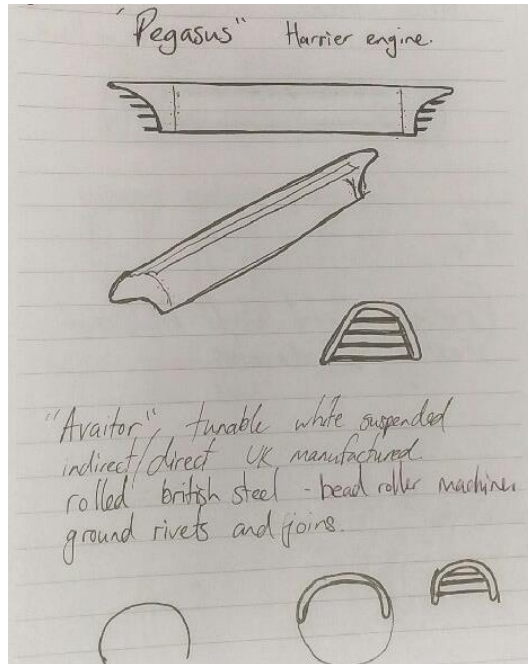 "Pegasus" Harrier engine.
"Avaitor", tunable white suspended
indirect/direct UK manufactured.
rolled british steel - bead roller machine
ground rivets and joins.